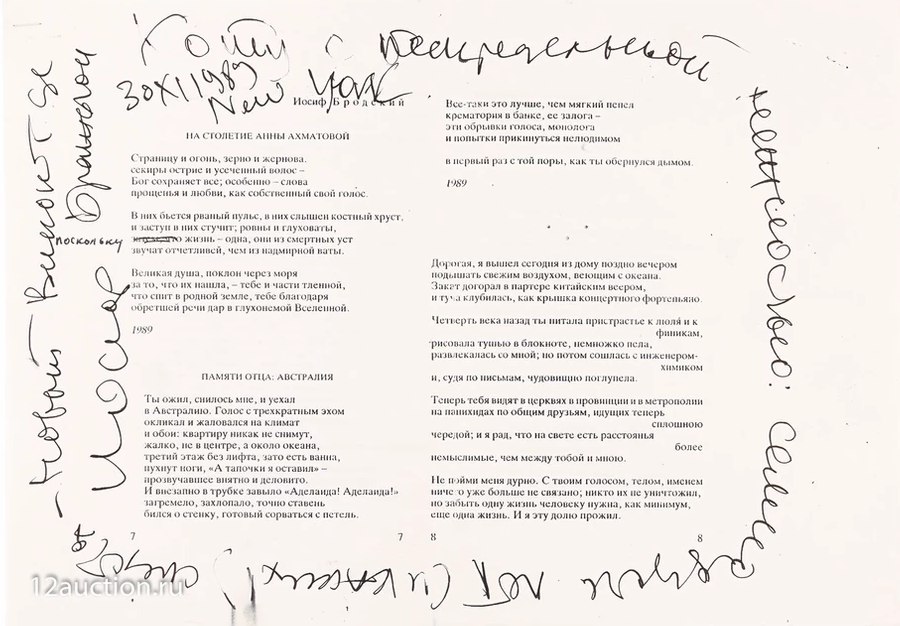 Гоши с беспредельной
30 XI 1989
New York
нежностью:
Иосиф
поскольку
Иосиф Бродский
НА СТОЛЕТИЕ АННЫ АХМАТОВОЙ
Страницу и огонь, зерно и жернова,
секиры острие и усеченный волос –
Бог сохраняет все; особенно – слова
прощенья и любви, как собственный свой голос.
В них бьется рваный пульс, в них слышен костный хруст,
и заступ в них стучит; ровны и глуховаты,
жизнь – одна, они из смертных уст
звучат отчетливей, чем из надмирной ваты.
Великая душа, поклон через моря
за то, что их нашла, – тебе и части тленной,
что спит в родной земле, тебе благодаря
обретшей речи дар в глухонемой Вселенной.
1989
ПАМЯТИ ОТЦА: АВСТРАЛИЯ
Ты ожил, снилось мне, и уехал
в Австралию. Голос с трехкратным эхом
окликал и жаловался на климат
и обои: квартиру никак не снимут,
жалко, не в центре, а около океана,
третий этаж без лифта, зато есть ванна,
пухнут ноги, «А тапочки я оставил» –
прозвучавшее внятно и деловито.
И внезапно в трубке завыло «Аделаида! Аделаида!»
загремело, захлопало, точно ставень
бился о стенку, готовый сорваться с петель.
7
7
Все-таки это лучше, чем мягкий пепел
крематория в банке, ее залога –
эти обрывки голоса, монолога
и попытки прикинуться нелюдимом
в первый раз с той поры, как ты обернулся дымом.
1989
* * *
Дорогая, я вышел сегодня из дому поздно вечером
подышать свежим воздухом, веющим с океана.
Закат догорал в партере китайским веером,
и туча клубилась, как крышка концертного фортепьяно.
Четверть века назад ты питала пристрастье к люля и к
финикам,
рисовала тушью в блокноте, немножко пела,
развлекалась со мной; но потом сошлась с инженером-
химиком
и, судя по письмам, чудовищно поглупела.
Теперь тебя видят в церквях в провинции и в метрополии
на панихидах по общим друзьям, идущих теперь
сплошною
чередой; и я рад, что на свете есть расстоянья
более
немыслимые, чем между тобой и мною.
Не пойми меня дурно. С твоим голосом, телом, именем
ничего уже больше не связано; никто их не уничтожил,
но забыть одну жизнь человеку нужна, как минимум,
еще одна жизнь. И я эту долю прожил.
8
8
12auction.ru